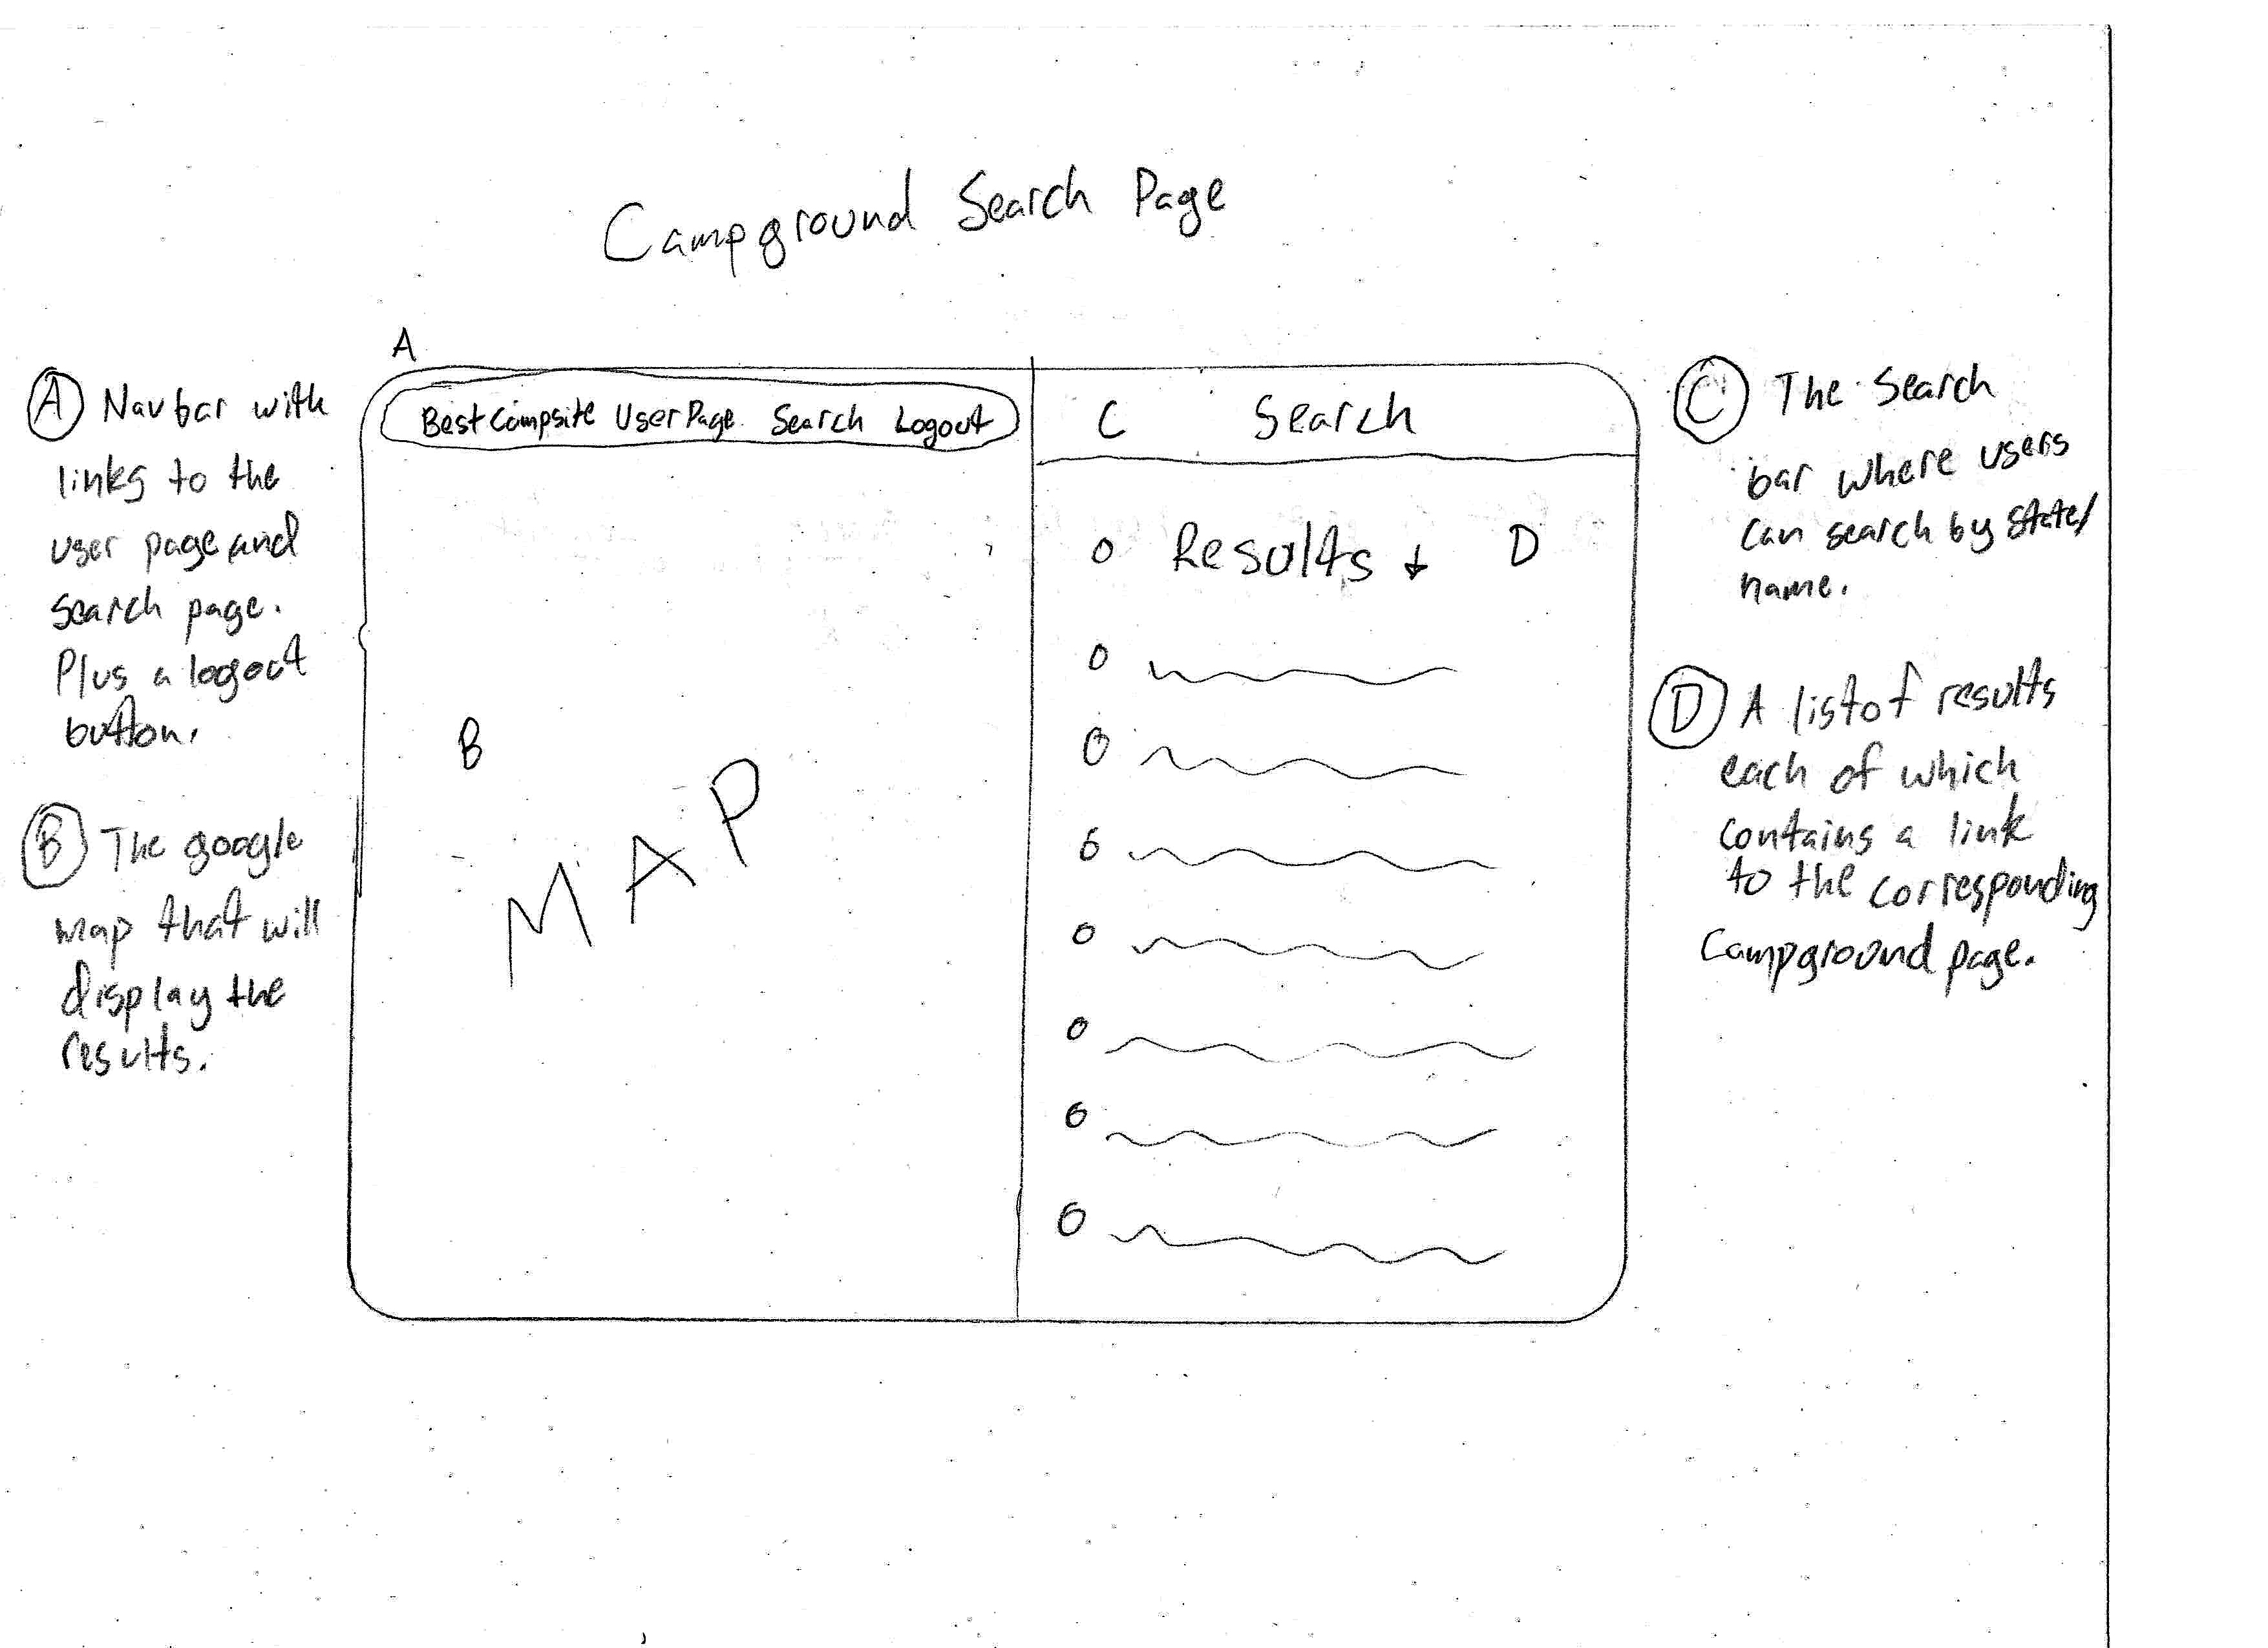 Campground Search Page
A
(A) Navbar with
links to the
user page and
search page.
Plus a logout
button.
(B) The google
map that will
display the
results.
Best Campsite User Page Search Logout
B
MAP
C Search
Results ↓ D
(C) The Search
bar where users
can search by state/
name.
(D) A list of results
each of which
contains a link
to the corresponding
Campground page.